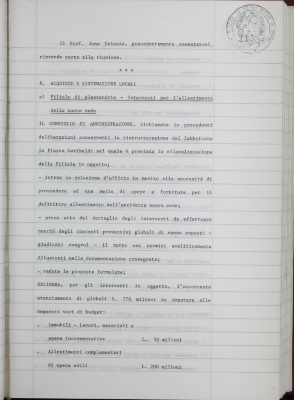 Il Prof. Jona Celesia, precedentemente assentatosi,
riprende parte alla riunione.
* * *
8. ACQUISTO E SISTEMAZIONI LOCALI
a) Filiale di Alessandria - Interventi per l'allestimento
della nuova sede
IL CONSIGLIO DI AMMINISTRAZIONE, richiamate le precedenti
deliberazioni concernenti la ristrutturazione del fabbricato
in Piazza Garibaldi nel quale è prevista la rilocalizzazione
della Filiale in oggetto;
- intesa la relazione d'ufficio in merito alla necessità di
provvedere ad una serie di opere e forniture per il
definitivo allestimento dell'anzidetta nuova sede;
- preso atto del dettaglio degli interventi da effettuare
nonché degli importi preventivi globali di spesa esposti -
giudicati congrui - il tutto nei termini analiticamente
illustrati nella documentazione consegnata;
- vedute le proposte formulate;
DELIBERA, per gli interventi in oggetto, l'occorrente
stanziamento di globali L. 770 milioni da imputare alle
seguenti voci di budget:
. Immobili - lavori, materiali e
spese incrementative L. 50 milioni
. Allestimenti complementari
di opere edili L. 200 milioni